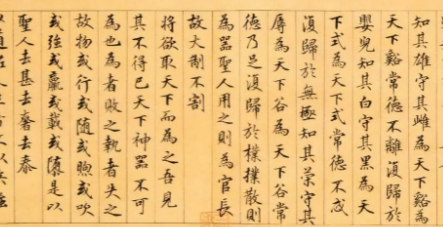 知其雄守其雌為天下谿為
天下谿常德不離復歸於
嬰兒知其白守其黑為天
下式為天下式常德不忒
復歸於無極知其榮守其
辱為天下谷為天下谷常
德乃足復歸於樸樸散則
為器聖人用之則為官長
故大制不割
將欲取天下而為之吾見
其不得已天下神器不可
為也為者敗之執者失之
故物或行或隨或煦或吹
或強或羸或載或隳是以
聖人去甚去奢去泰